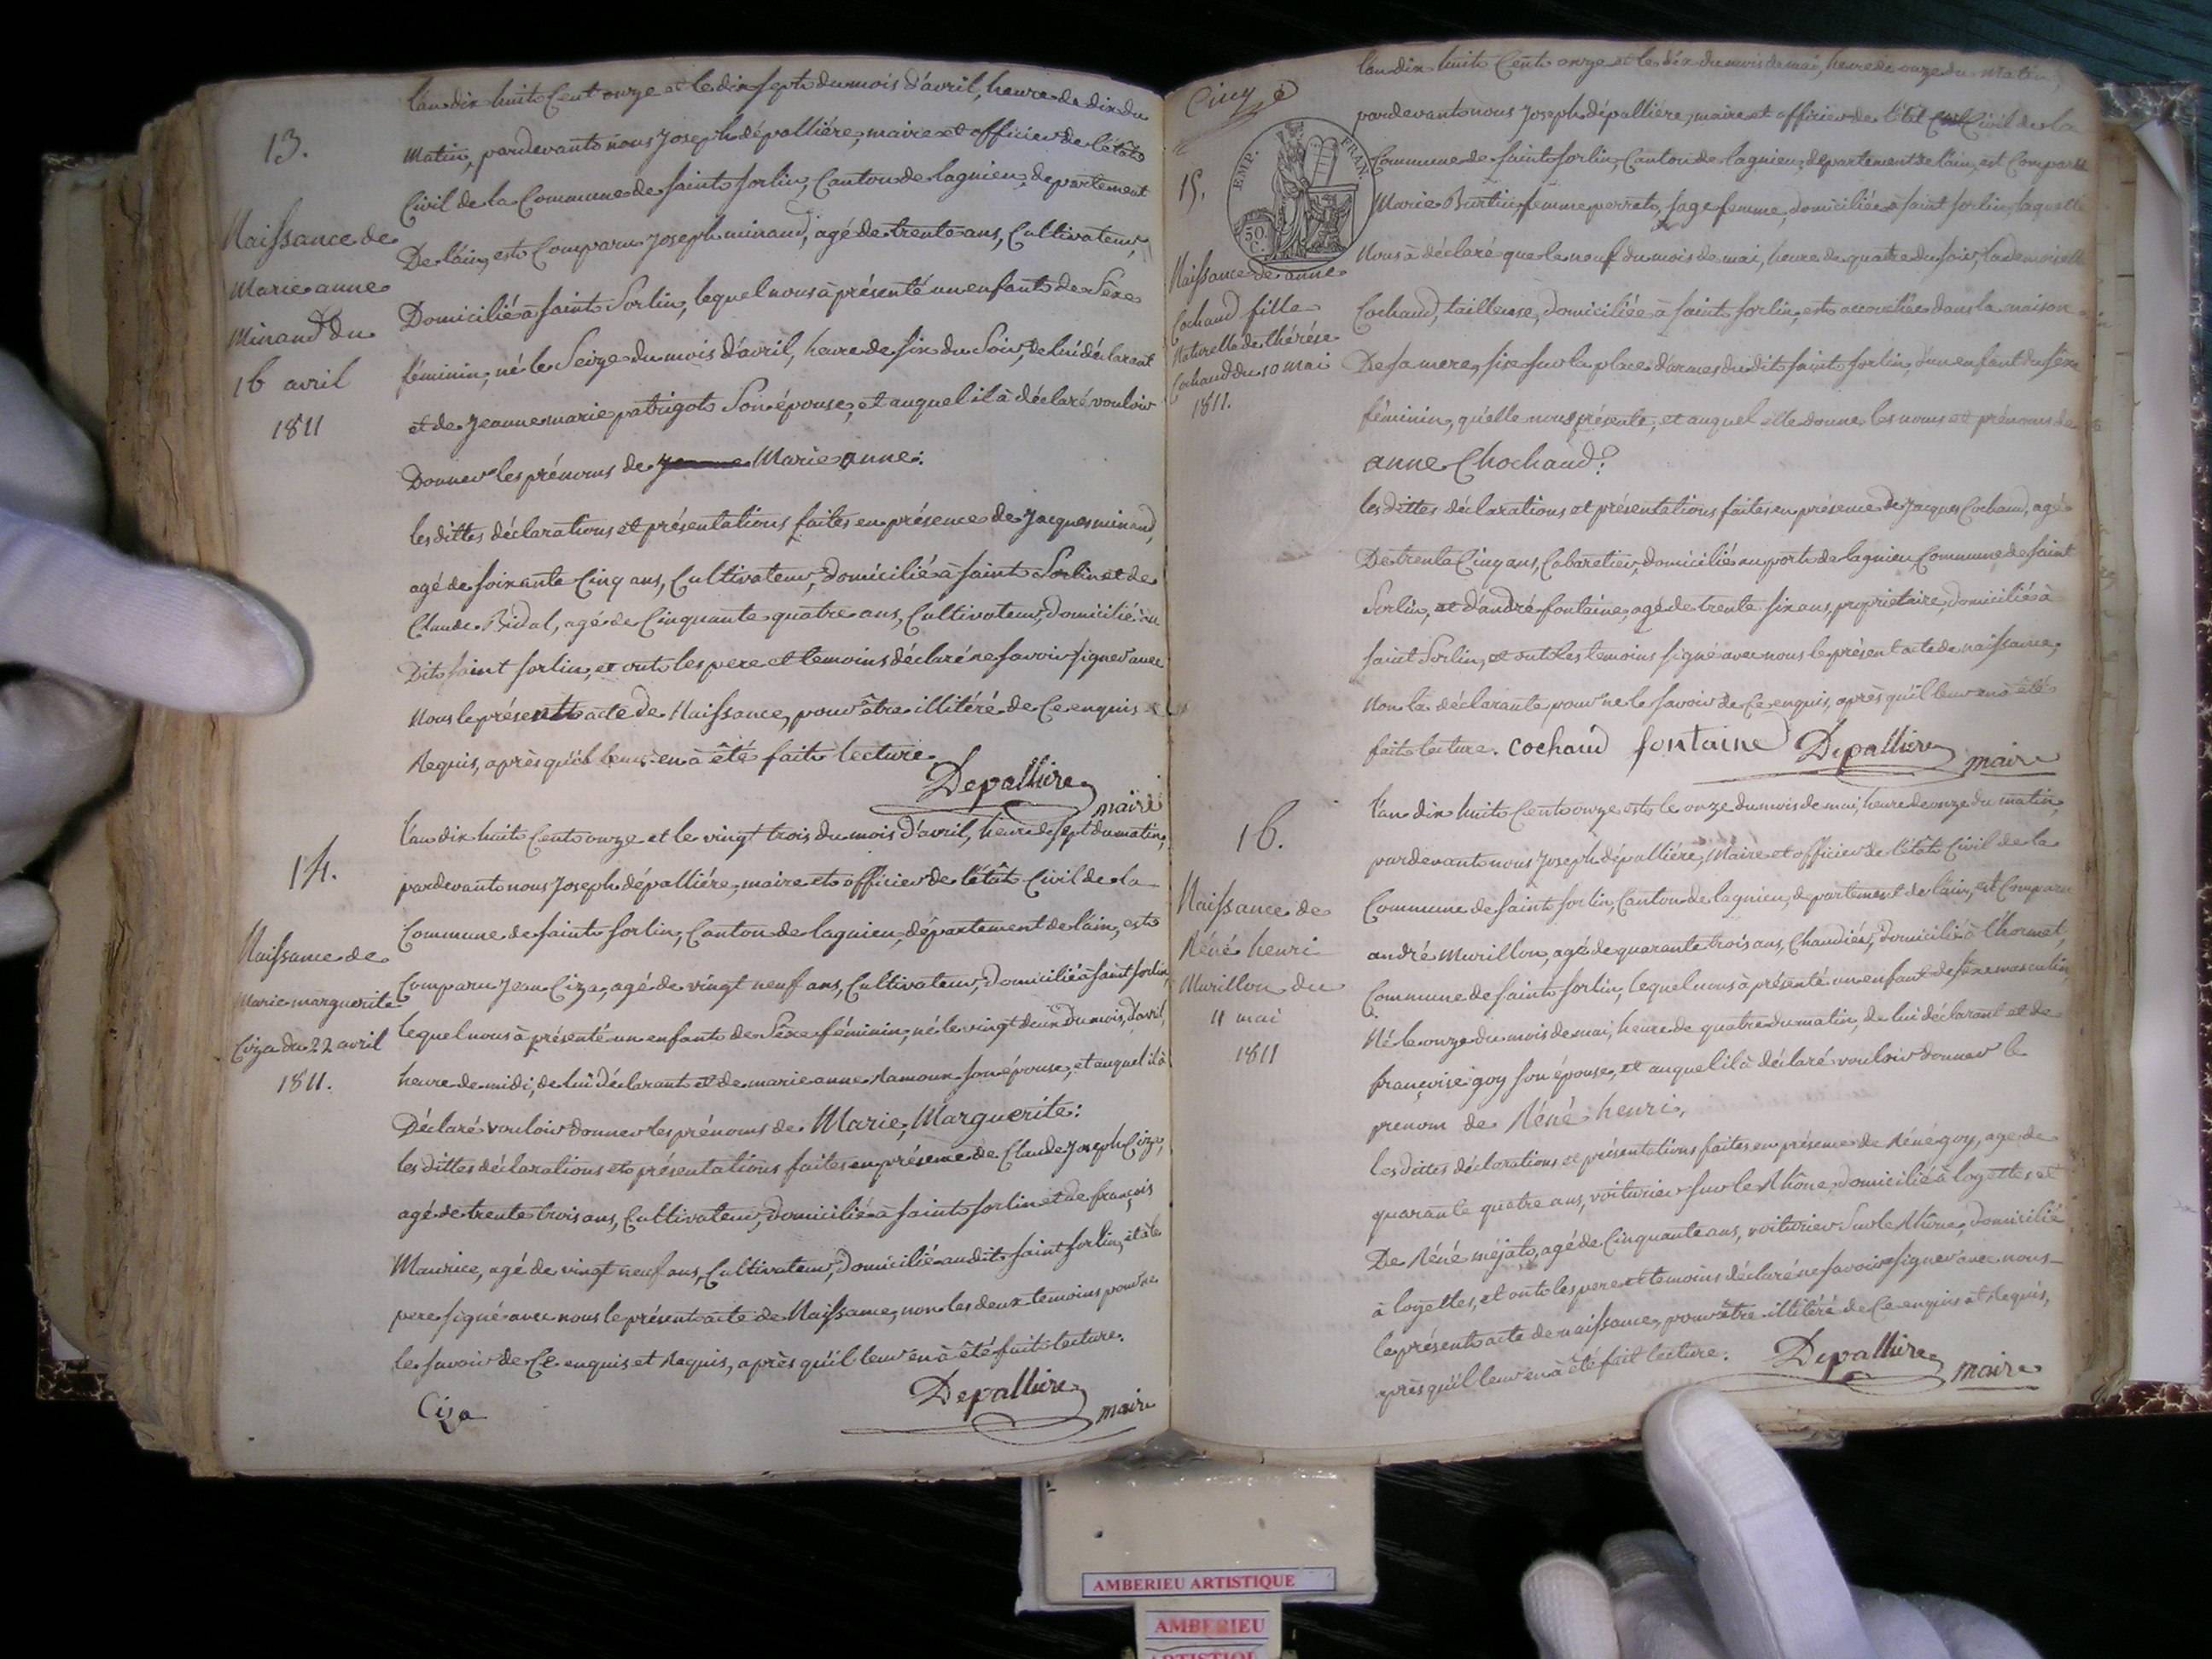 13.
Naissance de
Marie anne
Minand du
16 avril
1811
L'an dix huit Cent onze et le dix sept du mois d'avril, heure de dix du
Matin, pardevant nous Joseph dépallière, maire et officier de l'état
Civil de la Commune de saint Sorlin, Canton de lagnieu, departement
De l'ain, est Comparu Joseph minand, agé de trente ans, Cultivateur,
Domicilié à saint Sorlin, lequel nous à présenté un enfant de Sèxe
féminin, né le Seize du mois d'avril, heure de six du Soir, de lui déclarant
et de jeanne marie patrigot Son épouse, et auquel il à déclaré vouloir
Donner les prénoms de Marie anne:
les dittes déclarations et présentations faites en présence de Jacques minand,
agé de soixante Cinq ans, Cultivateur, domicilié à saint Sorlin et de
Claude Bidal, agé de Cinquante quatre ans, Cultivateur, domicilié au
Dit saint sorlin, et ont les pere et temoins déclaré ne savoir signer avec
Nous le présent acte de Naissance, pour être illitéré de Ce enquis et
Requis, après qu'il leur en à été fait lecture.
Depalliere
maire
14.
Naissance de
Marie marguerite
Ciza du 22 avril
1811.
l'an dix huit Cent onze et le vingt trois du mois d'avril, heure de sept du matin,
pardevant nous Joseph dépallière, maire et officier de l'état Civil de la
Commune de saint sorlin, Canton de lagnieu, département de l'ain, est
Comparu Jean Ciza, agé de vingt neuf ans, Cultivateur, domicilié à saint sorlin,
lequel nous à présenté un enfant de Sèxe féminin, né le vingt deux Du mois d'avril,
heure de midi, de lui déclarant et de marie anne Ramoux son épouse, et auquel il à
Déclaré vouloir donner les prénoms de Marie, Marguerite:
les dittes déclarations et présentations faites en présence de Claude Joseph Ciza,
agé de trente trois ans, Cultivateur, domicilié à saint sorlin et de françois
Maurice, agé de vingt neuf ans, Cultivateur, domicilié au dit saint sorlin, et à le
pere signé avec nous le présent acte de Naissance, non les deux temoins pour ne
le savoir de Ce enquis et Requis, après qu'il leur en à été fait lecture.
Ciza
Depalliere
maire
Cinq
EMP. FRAN.
50. C.
15.
Naissance de anne
Cochand fille
Naturelle de thérése
Cochand du 10 mai
1811.
l'an dix huit Cent onze et le dix du mois de mai, heure de onze du Matin,
pardevant nous Joseph dépallière, maire et officier de l'état Civil de la
Commune de saint sorlin, Canton de lagnieu, departement de l'ain, est Comparue
Marie Burtin, femme perret, sage femme, domiciliée à saint sorlin, laquelle
Nous à déclaré que le neuf du mois de mai, heure de quatre du soir, la demoiselle
Cochand, tailleuse, domiciliée à saint sorlin, est accouchée dans la maison
De sa mere, sise sur la place d'armes du dit saint sorlin d'un enfant du sèxe
féminin, qu'elle nous présente, et auquel elle donne les noms et prénoms de
anne Chochand:
les dittes déclarations et présentations faites en présence de Jacques Cochand, agé
De trente Cinq ans, Cabaretier, domicilié au port de lagnieu Commune de saint
Sorlin, et d'andré fontaine, agé de trente six ans, propriétaire, domicilié à
saint Sorlin, et ont les temoins signé avec nous le présent acte de naissance,
Non la déclarante pour ne le savoir de Ce enquis, après qu'il leur en à été
fait lecture. cochand fontaine Depalliere maire
16.
Naissance de
Réné henri
Murillon du
11 mai
1811
l'an dix huit Cent onze et le onze du mois de mai, heure de onze du matin,
pardevant nous Joseph dépallière, Maire et officier de l'état Civil de la
Commune de saint sorlin, Canton de lagnieu, departement de l'ain, est Comparu
andré Murillon, agé de quarante trois ans, Chaudier, domicilié à l'hormet,
Commune de saint sorlin, lequel nous à présenté un enfant de sèxe masculin,
Né le onze du mois de mai, heure de quatre du matin, de lui déclarant et de
françoise goy son épouse, et auquel il à déclaré vouloir donner le
prenom de Réné henri,
les dittes déclarations et présentations faites en présence de Réné goy, age de
quarante quatre ans, voiturier sur le Rhône, domicilié à loyettes et
De Réné méjat, agé de Cinquante ans, voiturier Sur le Rhône, domicilié
à loyettes, et ont les pere et temoins déclaré ne savoir signer avec nous
le présent acte de naissance, pour être illitéré de Ce enquis et Requis,
après qu'il leur en à été fait lecture. Depalliere maire
AMBERIEU ARTISTIQUE
AMBERIEU
ARTISTIQUE